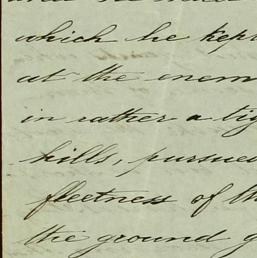 which he kep
at the enem
in rather a tig
hills, pursued
fleetness of th
the ground g